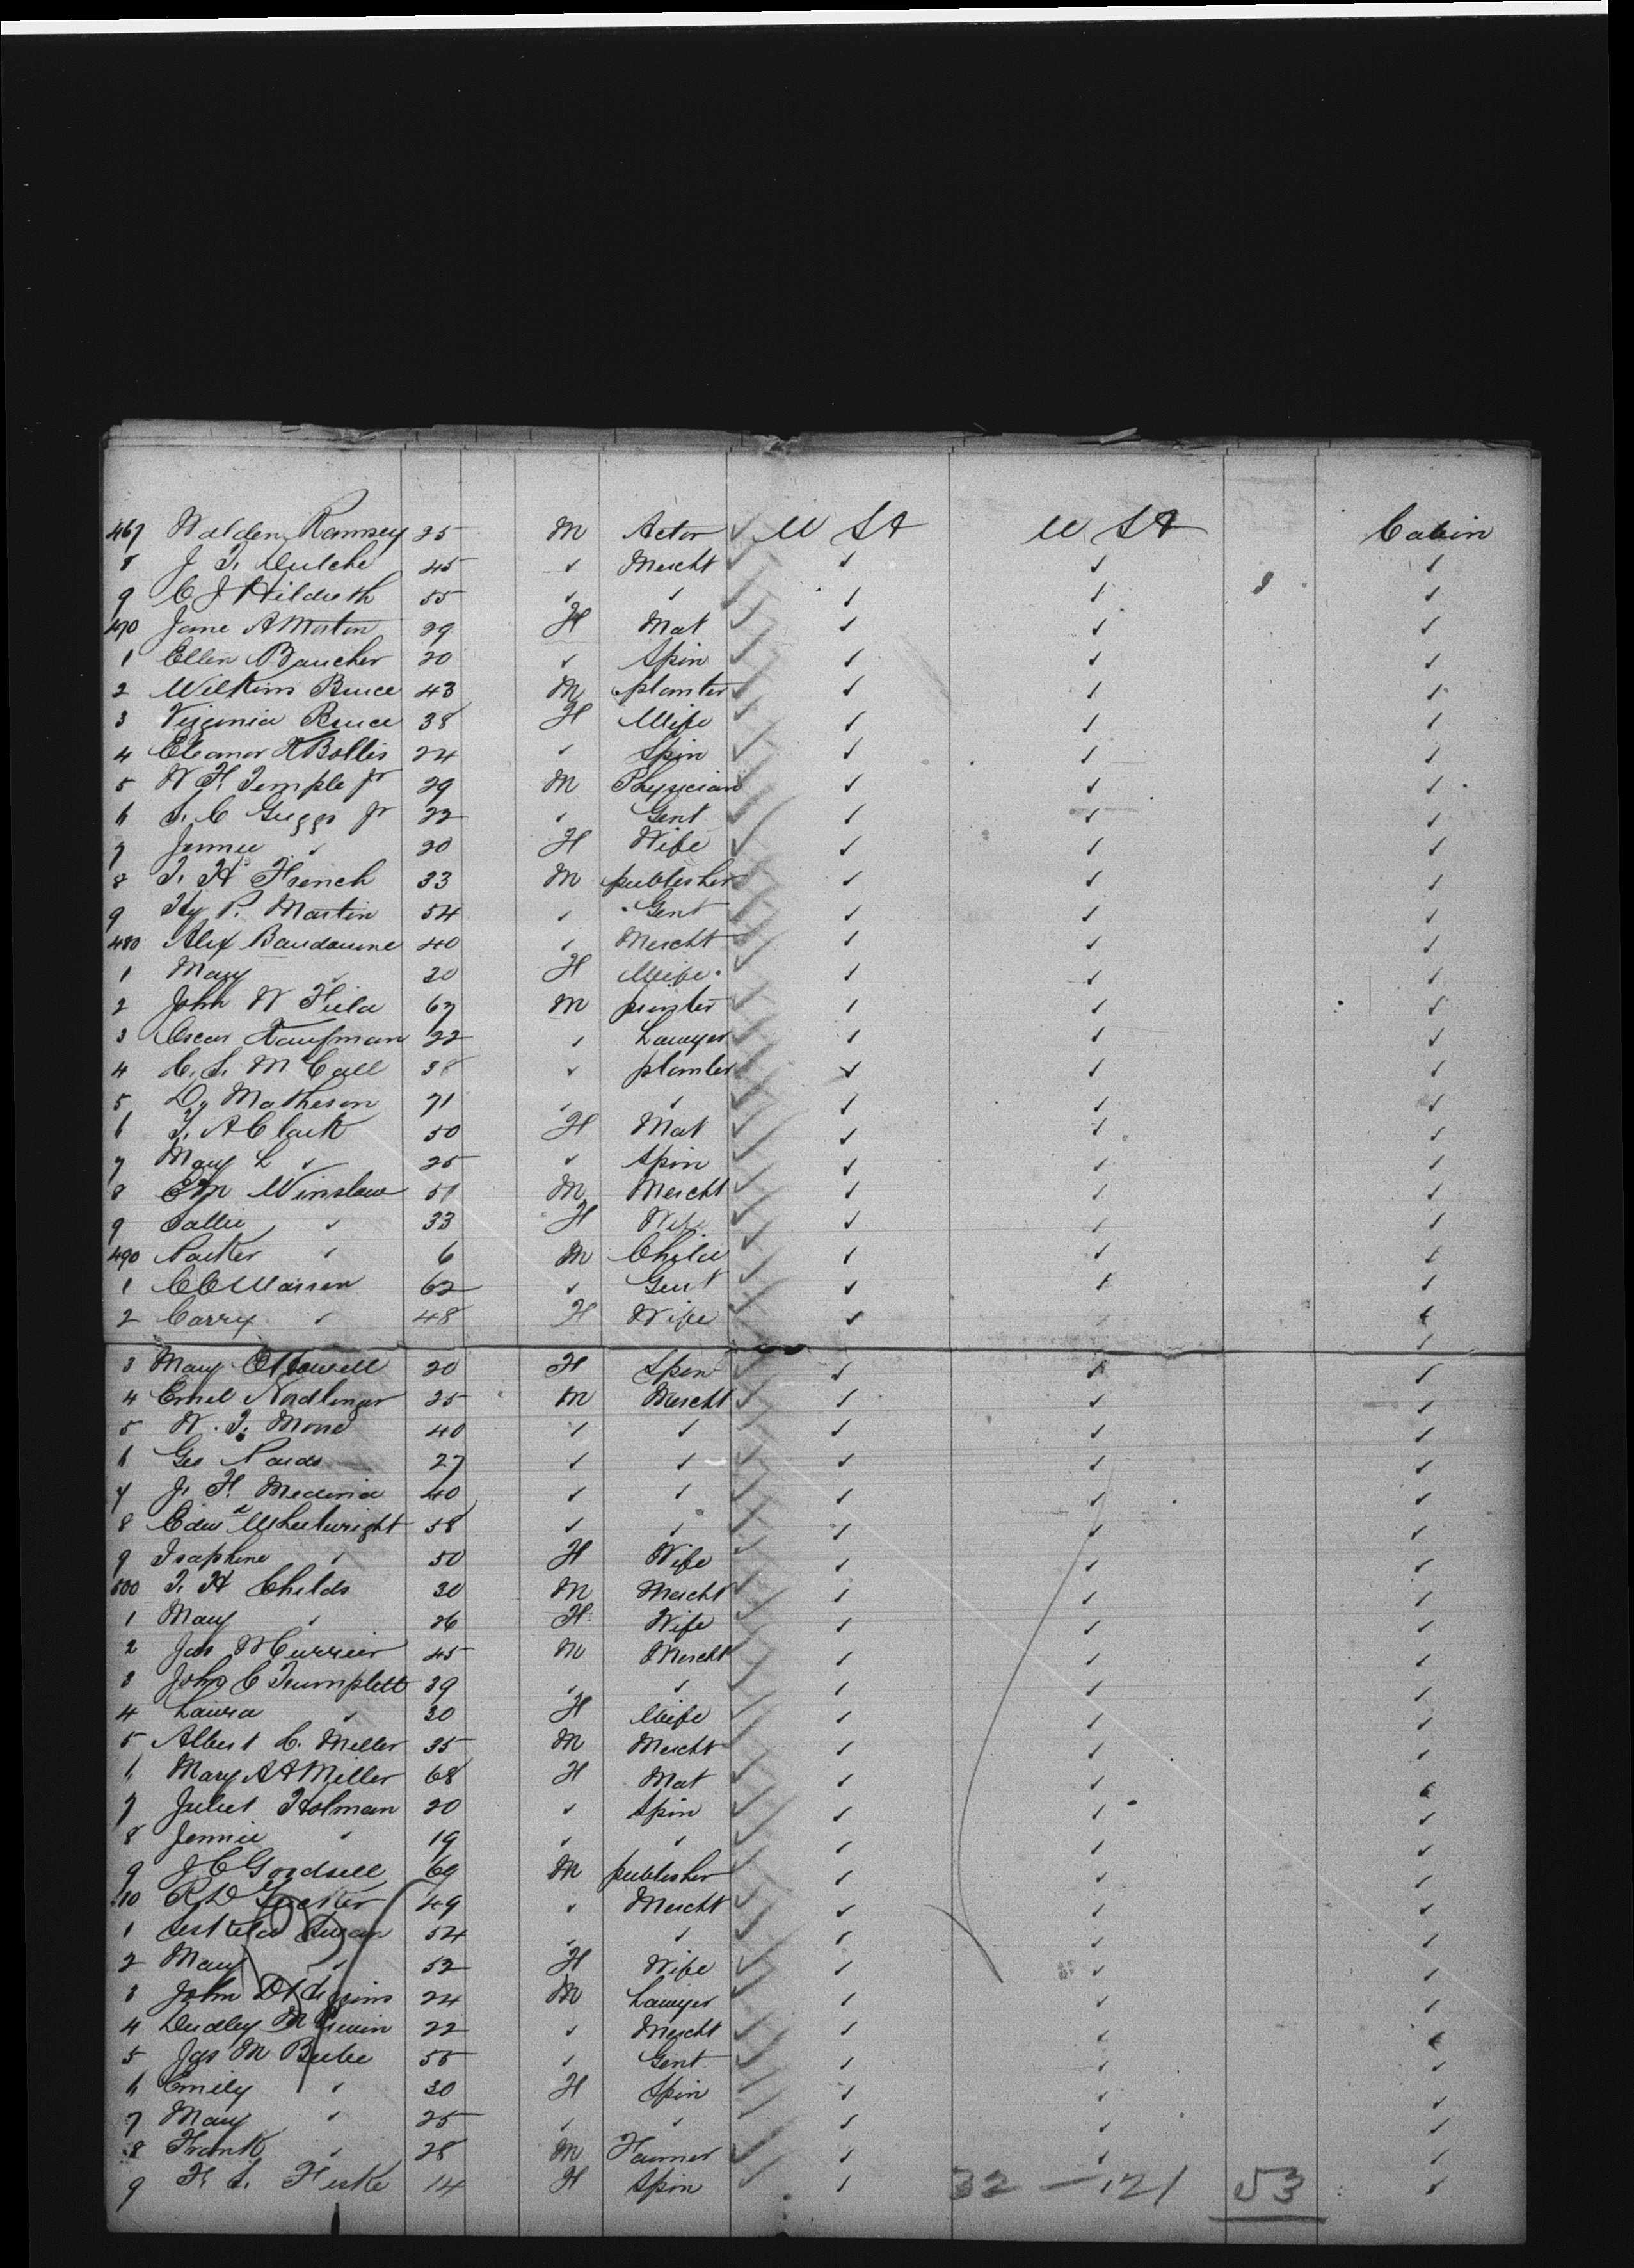 467 Walden Ramsey 25 M Actor U St U St Cabin
8 J. T. 45 ✓ Mercht ✓ ✓ ✓
9 C J Hildreth 55 ✓ ✓ ✓ ✓ ✓
470 Jane A Morton 29 F Mat ✓ ✓ ✓
1 Ellen Baucher 20 ✓ Spin ✓ ✓ ✓
2 Wilkins Bruce 43 M planter ✓ ✓ ✓
3 Virginia Bruce 38 F Wife ✓ ✓ ✓
4 Eleanor R Bolles 24 ✓ Spin ✓ ✓ ✓
5 W. F. Temple Jr 29 M Physician ✓ ✓ ✓
6 S. C Griggs Jr 22 ✓ Gent ✓ ✓ ✓
7 Jennie ✓ 20 F Wife ✓ ✓ ✓
8 T. H French 33 M publisher ✓ ✓ ✓
9 Hy P. Martin 54 ✓ Gent ✓ ✓ ✓
480 Alex Baudouine 40 ✓ Mercht ✓ ✓ ✓
1 Mary ✓ 20 F Wife ✓ ✓ ✓
2 John W Field 67 M printer ✓ ✓ ✓
3 Oscar Kaufman 22 ✓ Lawyer ✓ ✓ ✓
4 C. S. McCall 38 ✓ planter ✓ ✓ ✓
5 Dy Matheson 71 ✓ ✓ ✓ ✓ ✓
6 F. A Clark 50 F Mat ✓ ✓ ✓
7 Mary L ✓ 25 ✓ Spin ✓ ✓ ✓
8 E M Winslow 51 M Mercht ✓ ✓ ✓
9 Sallie ✓ 33 F Wife ✓ ✓ ✓
490 Parker ✓ 6 M Child ✓ ✓ ✓
1 C C Warren 62 ✓ Gent ✓ ✓ ✓
2 Carry ✓ 48 F Wife ✓ ✓ ✓
3 Mary 20 F Spin ✓ ✓ ✓
4 Emil Nordlinger 25 M Mercht ✓ ✓ ✓
5 W. T. Morse 40 ✓ ✓ ✓ ✓ ✓
6 Geo 27 ✓ ✓ ✓ ✓ ✓
7 J. F. Medina 40 ✓ ✓ ✓ ✓ ✓
8 Edwd Wheelwright 58 ✓ ✓ ✓ ✓ ✓
9 Isaphine ✓ 50 F Wife ✓ ✓ ✓
500 T. H Childs 30 M Mercht ✓ ✓ ✓
1 Mary ✓ 26 F Wife ✓ ✓ ✓
2 Jas M Currier 45 M Mercht ✓ ✓ ✓
3 John C Trumplett 39 ✓ ✓ ✓ ✓ ✓
4 Laura ✓ 30 F Wife ✓ ✓ ✓
5 Albert C. Miller 35 M Mercht ✓ ✓ ✓
6 Mary A A Miller 68 F Mat ✓ ✓ ✓
7 Juliet Holman 20 ✓ Spin ✓ ✓ ✓
8 Jennie ✓ 19 ✓ ✓ ✓ ✓ ✓
9 J C Goodsell 69 M publisher ✓ ✓ ✓
10 R D Tucker 49 ✓ Mercht ✓ ✓ ✓
1 54 ✓ ✓ ✓ ✓ ✓
2 Mary ✓ 52 F Wife ✓ ✓ ✓
3 John D 24 M Lawyer ✓ ✓ ✓
4 Dudley M 22 ✓ Mercht ✓ ✓ ✓
5 Jas M Beebe 55 ✓ Gent ✓ ✓ ✓
6 Emily ✓ 30 F Spin ✓ ✓ ✓
7 Mary ✓ 25 ✓ ✓ ✓ ✓ ✓
8 Frank ✓ 28 M Farmer ✓ ✓ ✓
9 F. S. Fiske 14 F Spin ✓ 32 — 121 53 ✓